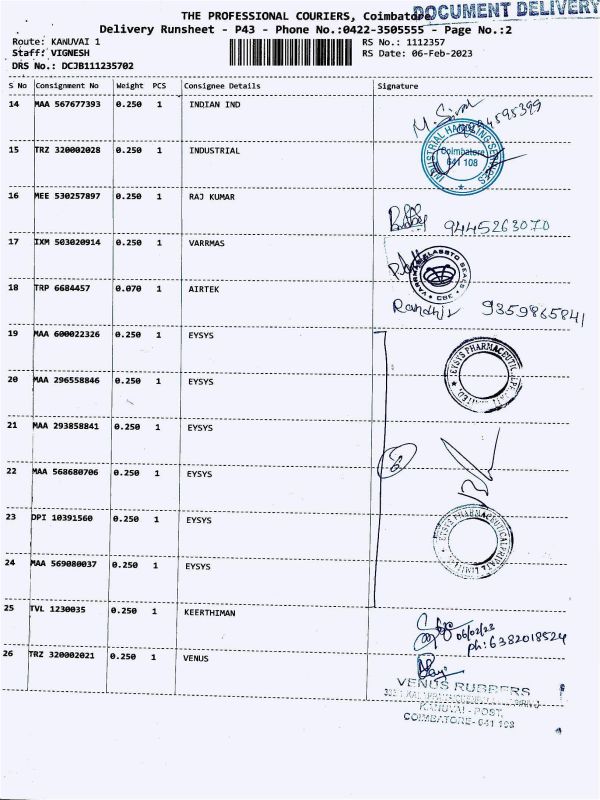 THE PROFESSIONAL COURIERS, Coimbatore
DOCUMENT DELIVERY
Delivery Runsheet - P43 - Phone No.:0422-3505555 - Page No.:2
Route: KANUVAI 1 RS No.: 1112357
Staff: VIGNESH RS Date: 06-Feb-2023
DRS No.: DCJB111235702
S No Consignment No Weight PCS Consignee Details Signature
14 MAA 567677393 0.250 1 INDIAN IND
INDUSTRIAL HANDLING SERVICES
Coimbatore
641 108
15 TRZ 320002028 0.250 1 INDUSTRIAL
16 MEE 530257897 0.250 1 RAJ KUMAR
9445263070
17 IXM 503020914 0.250 1 VARRMAS
CBE
18 TRP 6684457 0.070 1 AIRTEK
Randhir 9359865841
19 MAA 600022326 0.250 1 EYSYS
EYSYS PHARMACEUTICAL
20 MAA 296558846 0.250 1 EYSYS
21 MAA 293858841 0.250 1 EYSYS
6
22 MAA 568680706 0.250 1 EYSYS
23 DPI 10391560 0.250 1 EYSYS
EYSYS PHARMACEUTICAL PRIVATE LIMITED
24 MAA 569080037 0.250 1 EYSYS
25 TVL 1230035 0.250 1 KEERTHIMAN
06/02/23
ph: 6382018524
26 TRZ 320002021 0.250 1 VENUS
VENUS RUBBERS
KANUVAI - POST,
COIMBATORE- 641 108